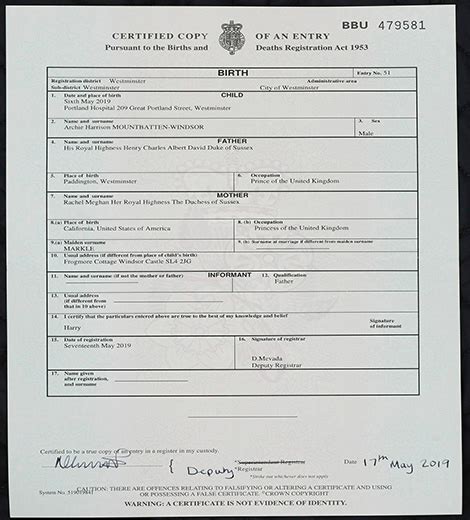 BBU 479581
CERTIFIED COPY OF AN ENTRY
Pursuant to the Births and Deaths Registration Act 1953
BIRTH Entry No. 51
Registration district Westminster Administrative area
Sub-district Westminster City of Westminster
1. Date and place of birth CHILD
Sixth May 2019
Portland Hospital 209 Great Portland Street, Westminster
2. Name and surname 3. Sex
Archie Harrison MOUNTBATTEN-WINDSOR Male
4. Name and surname FATHER
His Royal Highness Henry Charles Albert David Duke of Sussex
5. Place of birth 6. Occupation
Paddington, Westminster Prince of the United Kingdom
7. Name and surname MOTHER
Rachel Meghan Her Royal Highness The Duchess of Sussex
8.(a) Place of birth 8. (b) Occupation
California, United States of America Princess of the United Kingdom
9.(a) Maiden surname 9. (b) Surname at marriage if different from maiden surname
MARKLE
10. Usual address (if different from place of child's birth)
Frogmore Cottage Windsor Castle SL4 2JG
11. Name and surname (if not the mother or father) INFORMANT 12. Qualification
Father
13. Usual address
(if different from
that in 10 above)
14. I certify that the particulars entered above are true to the best of my knowledge and belief Signature
of informant
Harry
15. Date of registration 16. Signature of registrar
Seventeenth May 2019
D.Mevada
Deputy Registrar
17. Name given
after registration,
and surname
Certified to be a true copy of an entry in a register in my custody.
{ Deputy *Superintendent Registrar
*Registrar
Date 17th May 2019
*Strike out whichever does not apply
System No.
CAUTION: THERE ARE OFFENCES RELATING TO FALSIFYING OR ALTERING A CERTIFICATE AND USING
OR POSSESSING A FALSE CERTIFICATE. ©CROWN COPYRIGHT
WARNING: A CERTIFICATE IS NOT EVIDENCE OF IDENTITY.